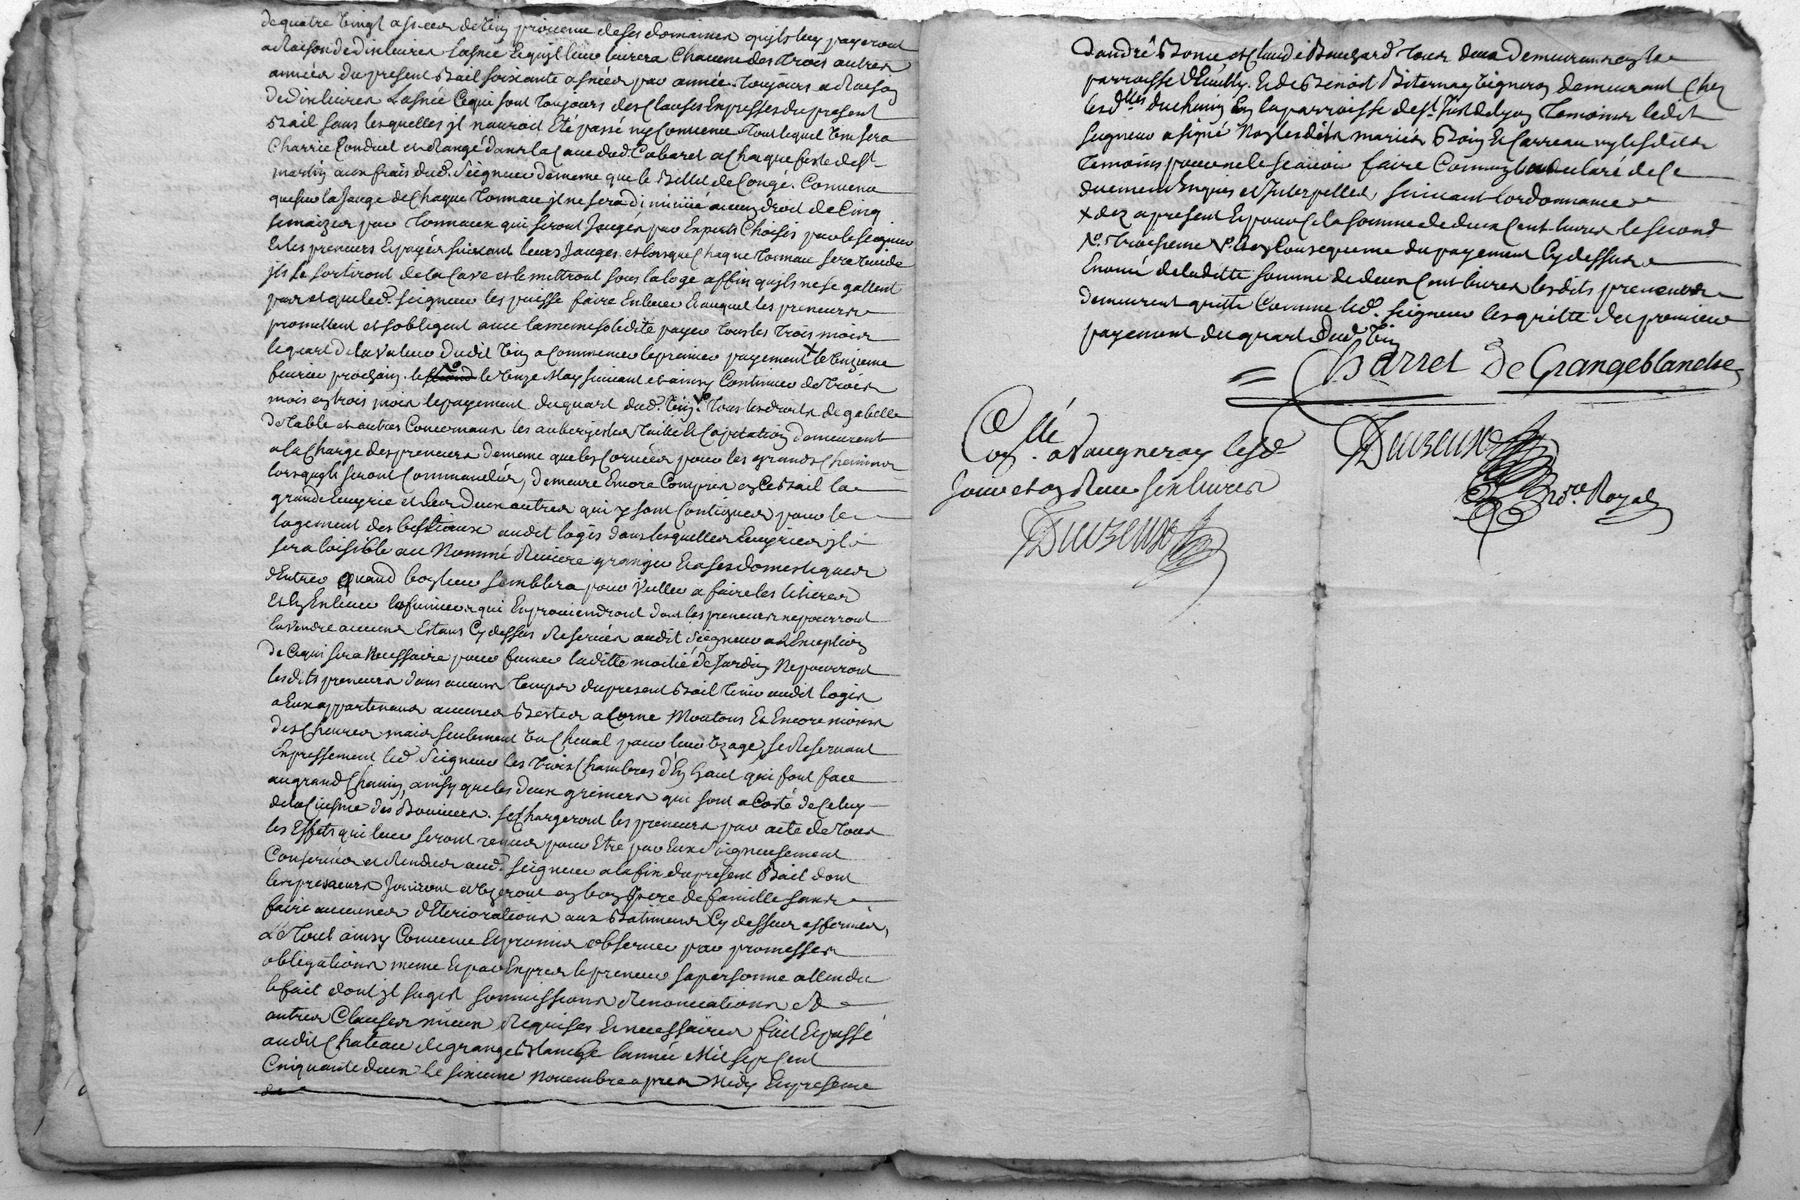 de quatre vingt asnées de vin provenu de ses domaines qu'ils luy payeront
a raison de dix livres l'asnée Et qu'il leur livrera chacune des trois autres
années du present Bail soixante asnées par année toujours a raison
de dix livres l'asnée Ce qui sont toujours des clauses Expresses du present
Bail sans lesquelles jl n'auroit Eté passé ny convenu tout lequel vin sera
Charrié Conduit et rangé dans la Cave dud. Cabaret a chaque feste de st
martin aux frais dud. Seigneur de meme que le Billet de Congé. Convenu
que sur la jauge de chaque tonneau jl ne sera diminué aucun droit de cinq
semaizes par tonneaux qui seront jaugés par Experts choisis par le seigneur
Et les preneurs Et payés suivant leurs jauges. et lorsque chaque tonneau sera vuide
jls le sortiront de la Cave et le mettront sous la loge affin qu'ils ne se gattent
pas et que led. seigneur les puisse faire Enlever auquel les preneurs
promettent et s'obligent avec la meme solidité payer tous les trois mois
le quart de la valeur dudit vin a commencer le premier payement x le onzieme
fevrier prochain. le second le onze May suivant et ainsy Continuer de trois
mois en trois mois le payement du quart dud. vin. tous les droits de gabelle
de table et autres Concernant les aubergistes taille Et Capitation demeurent
a la charge des preneurs de meme que les Corvées pour les grands chemins
lorsqu'ils seront Commandées, demeure Encore Compris en ce Bail la
grande Ecuyrie et les deux autres qui y sont Contigues pour le
logement des Bestiaux audit logis dans lesquelles Ecuyries jl
sera loisible au Nommé Riviere granger Et a ses domestiques
d'Entrer quand bon leur semblera pour veiller a faire les litieres
Et En Enlever les fumiers qui En proviendront dont les preneurs ne pourront
En vendre aucuns Estans Cy dessus Reservés audit seigneur a l'Exception
de Ce qui sera Necessaire pour fumer laditte moitié de Jardin Ne pourront
lesdits preneurs dans aucuns temps du present Bail tenir audit logis
a Eux appartenans aucunes Bestes a Corne Moutons Et Encore moins
des chevres mais seulement un cheval pour leur uzage, se Reservant
Expressement led. Seigneur les trois chambres d'En haut qui font face
au grand chemin, ainsy que les deux greniers qui sont a Costé de Celuy
de la Cuisine des Bouviers. se chargeront les preneurs par acte de tous
les Effets qui leur seront remis pour Etre par Eux soigneusement
Conservés et Rendus aud. seigneur a la fin du present Bail dont
les preneurs Jouiront et uzeront en bon Pere de famille sans
faire aucunes détériorations aux Batimens Cy dessus affermés,
Le tout ainsy Convenu Et promis observer par promesses
obligations meme Et par Exprès le preneur sa personne attendu
le fait dont jl s'agit soumissions Renonciations Et
autres clauses mieux Requises Et necessaires fait Et passé
audit chateau de grange Blanche l'année Mil sept Cent
Cinquante deux le sixieme Novembre apres Midy En presence
d'andré Bonie et Claude Bouchard tous deux demeurans en la
parroisse d'Ecully. Et de Benoist Biternay vigneron demeurant chez
les dlles duchain En la parroisse de st. Just de lyon temoins ledit
seigneur a signé Non lesdits mariés Boin Et Carreau ny lesdits
temoins pour ne le scavoir faire comme ils ont declaré de Ce
duement Enquis et Interpellés, suivant l'ordonnance
x dez a present En pour la somme de deux Cent livres le second
No. troisieme No. Et en Consequence du payement Cy dessus
Enoncé de laditte somme de deux Cent livres lesdits preneurs
demeurent quitte Comme led. seigneur les quitte du premier
payement du quart dud. vin
Charret De Grangeblanche
Conlle. a Vaugneray le sd.
soive et en Reçu six livres
Duvzeux
Duvzeux
No.re Royal